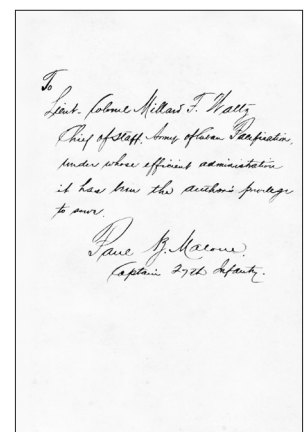 To
Lieut. Colonel Millard F. Waltz
Chief of Staff, Army of Cuban Pacification,
under whose efficient administration
it has been the author's privilege
to serve.
Paul B. Malone.
Captain 27th Infantry.